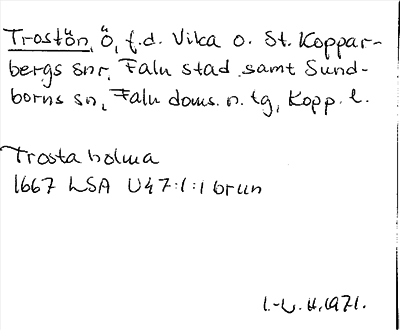 Trostön, ö, f.d. Vika o. St. Koppar-
bergs snr, Falu stad samt Sund-
borns sn, Falu doms. n. tg, Kopp. l.
Trosta holma
1667 LSA U47:1:1 brun
I.-L. H. 1971.